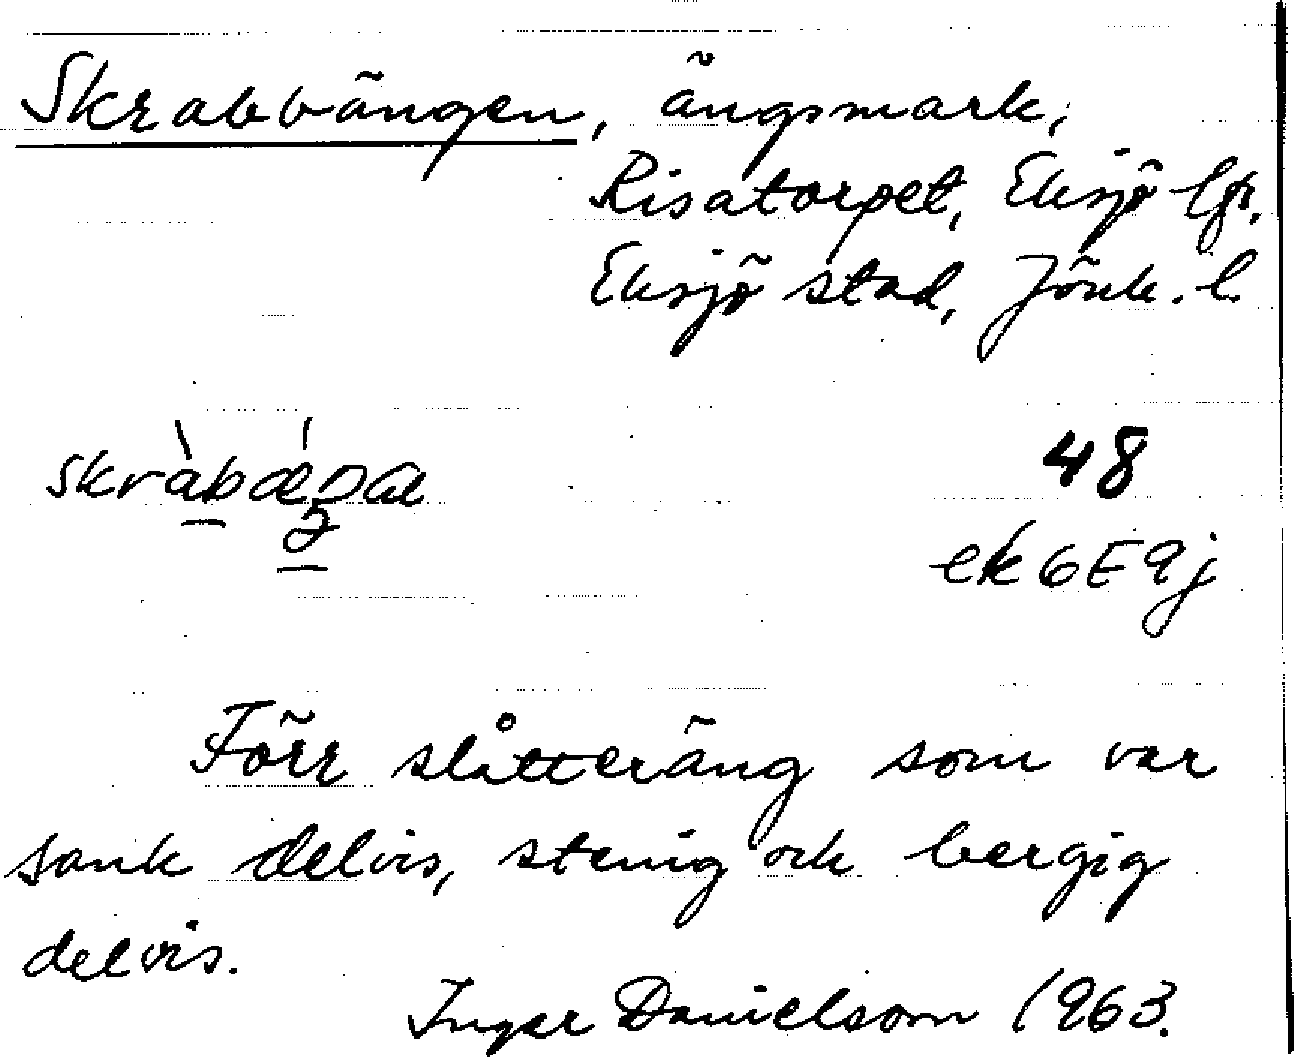 Skrabbängen, ängsmark,
Risatorpet, Eksjö lfs,
Eksjö stad, Jönk. l.
48
ek 6E9j
Förr slåtteräng som var
sank delvis, stenig och bergig
delvis.
Inger Danielsson 1963.